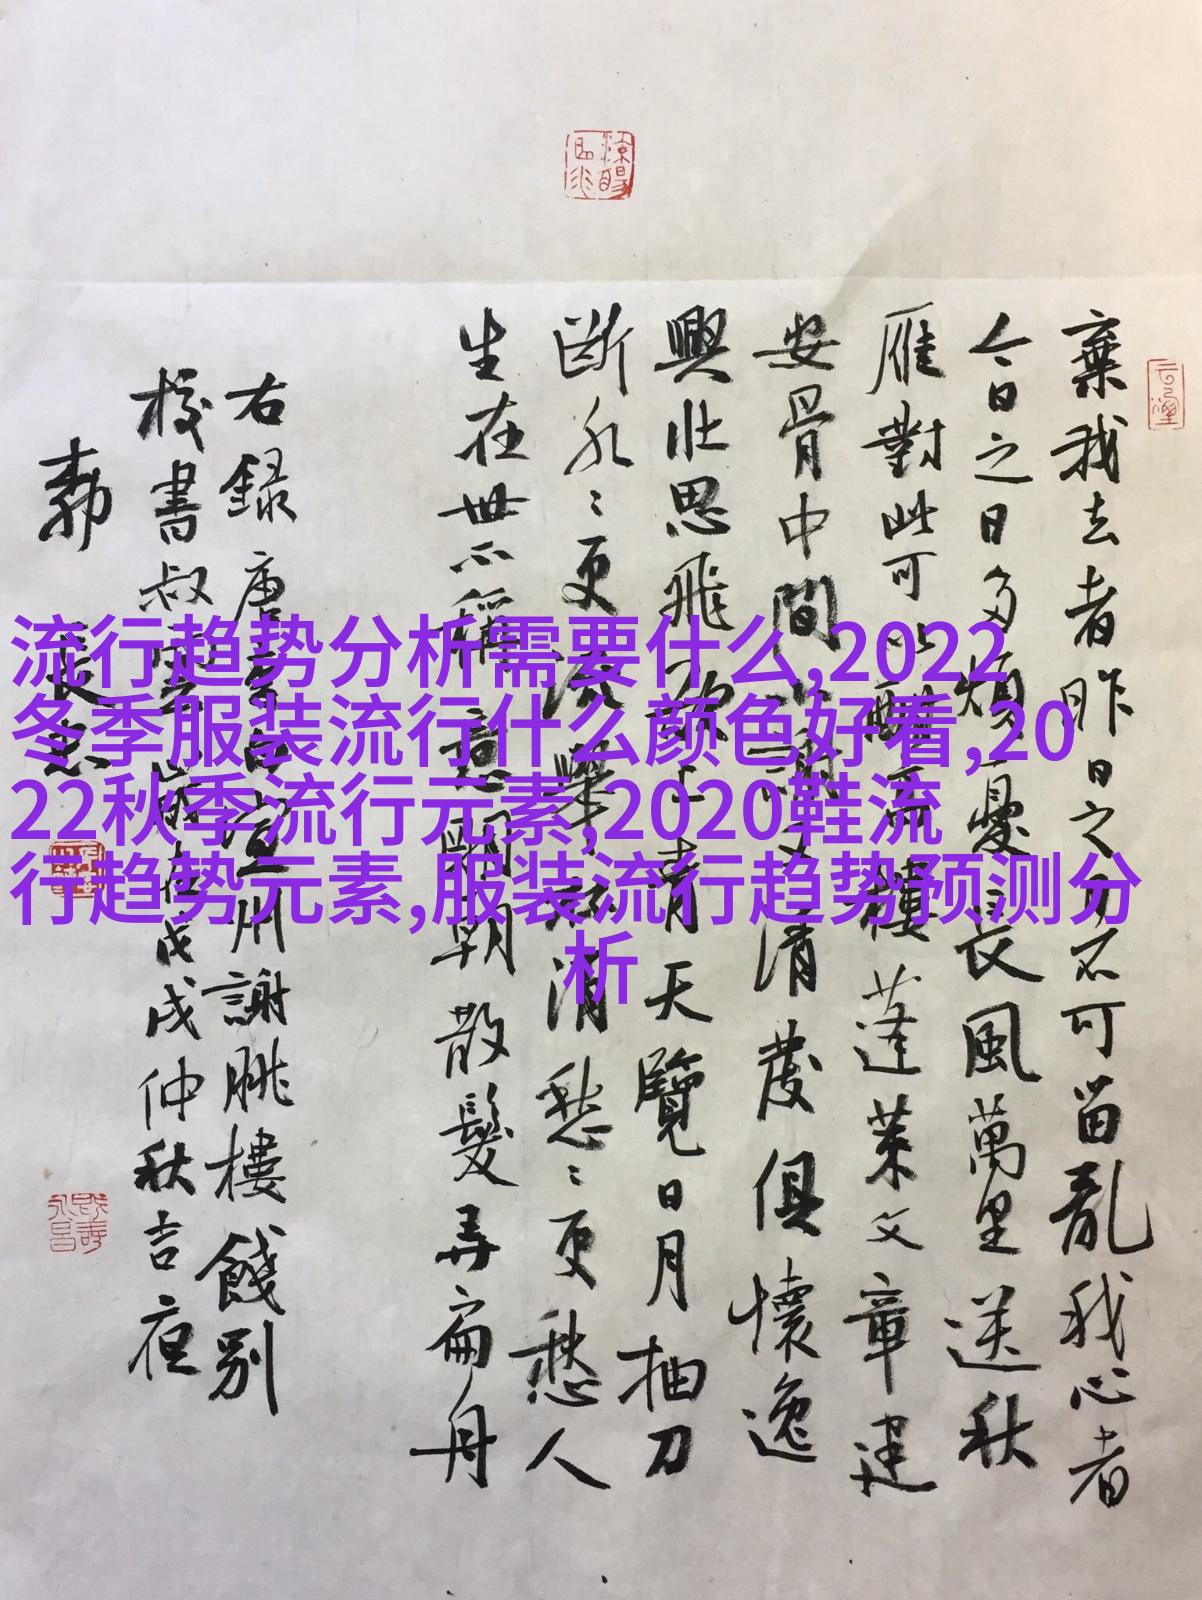 流行趋势分析需要什么,2022
冬季服装流行什么颜色好看,20
22秋季流行元素,2020鞋流
行趋势元素,服装流行趋势预测分
析
棄我去者昨日之日不可留亂我心者
今日之日多煩憂長風萬里送秋
雁對此可以酣高樓蓬萊文章建
安骨中間小謝又清發俱懷逸
興壯思飛欲上青天覽日月抽刀
斷水〻更流舉杯消愁〻更愁人
生在世不稱意明朝散髮弄扁舟
右録唐李白宣州謝朓樓餞別
校書叔雲歲在戊戌仲秋吉夜